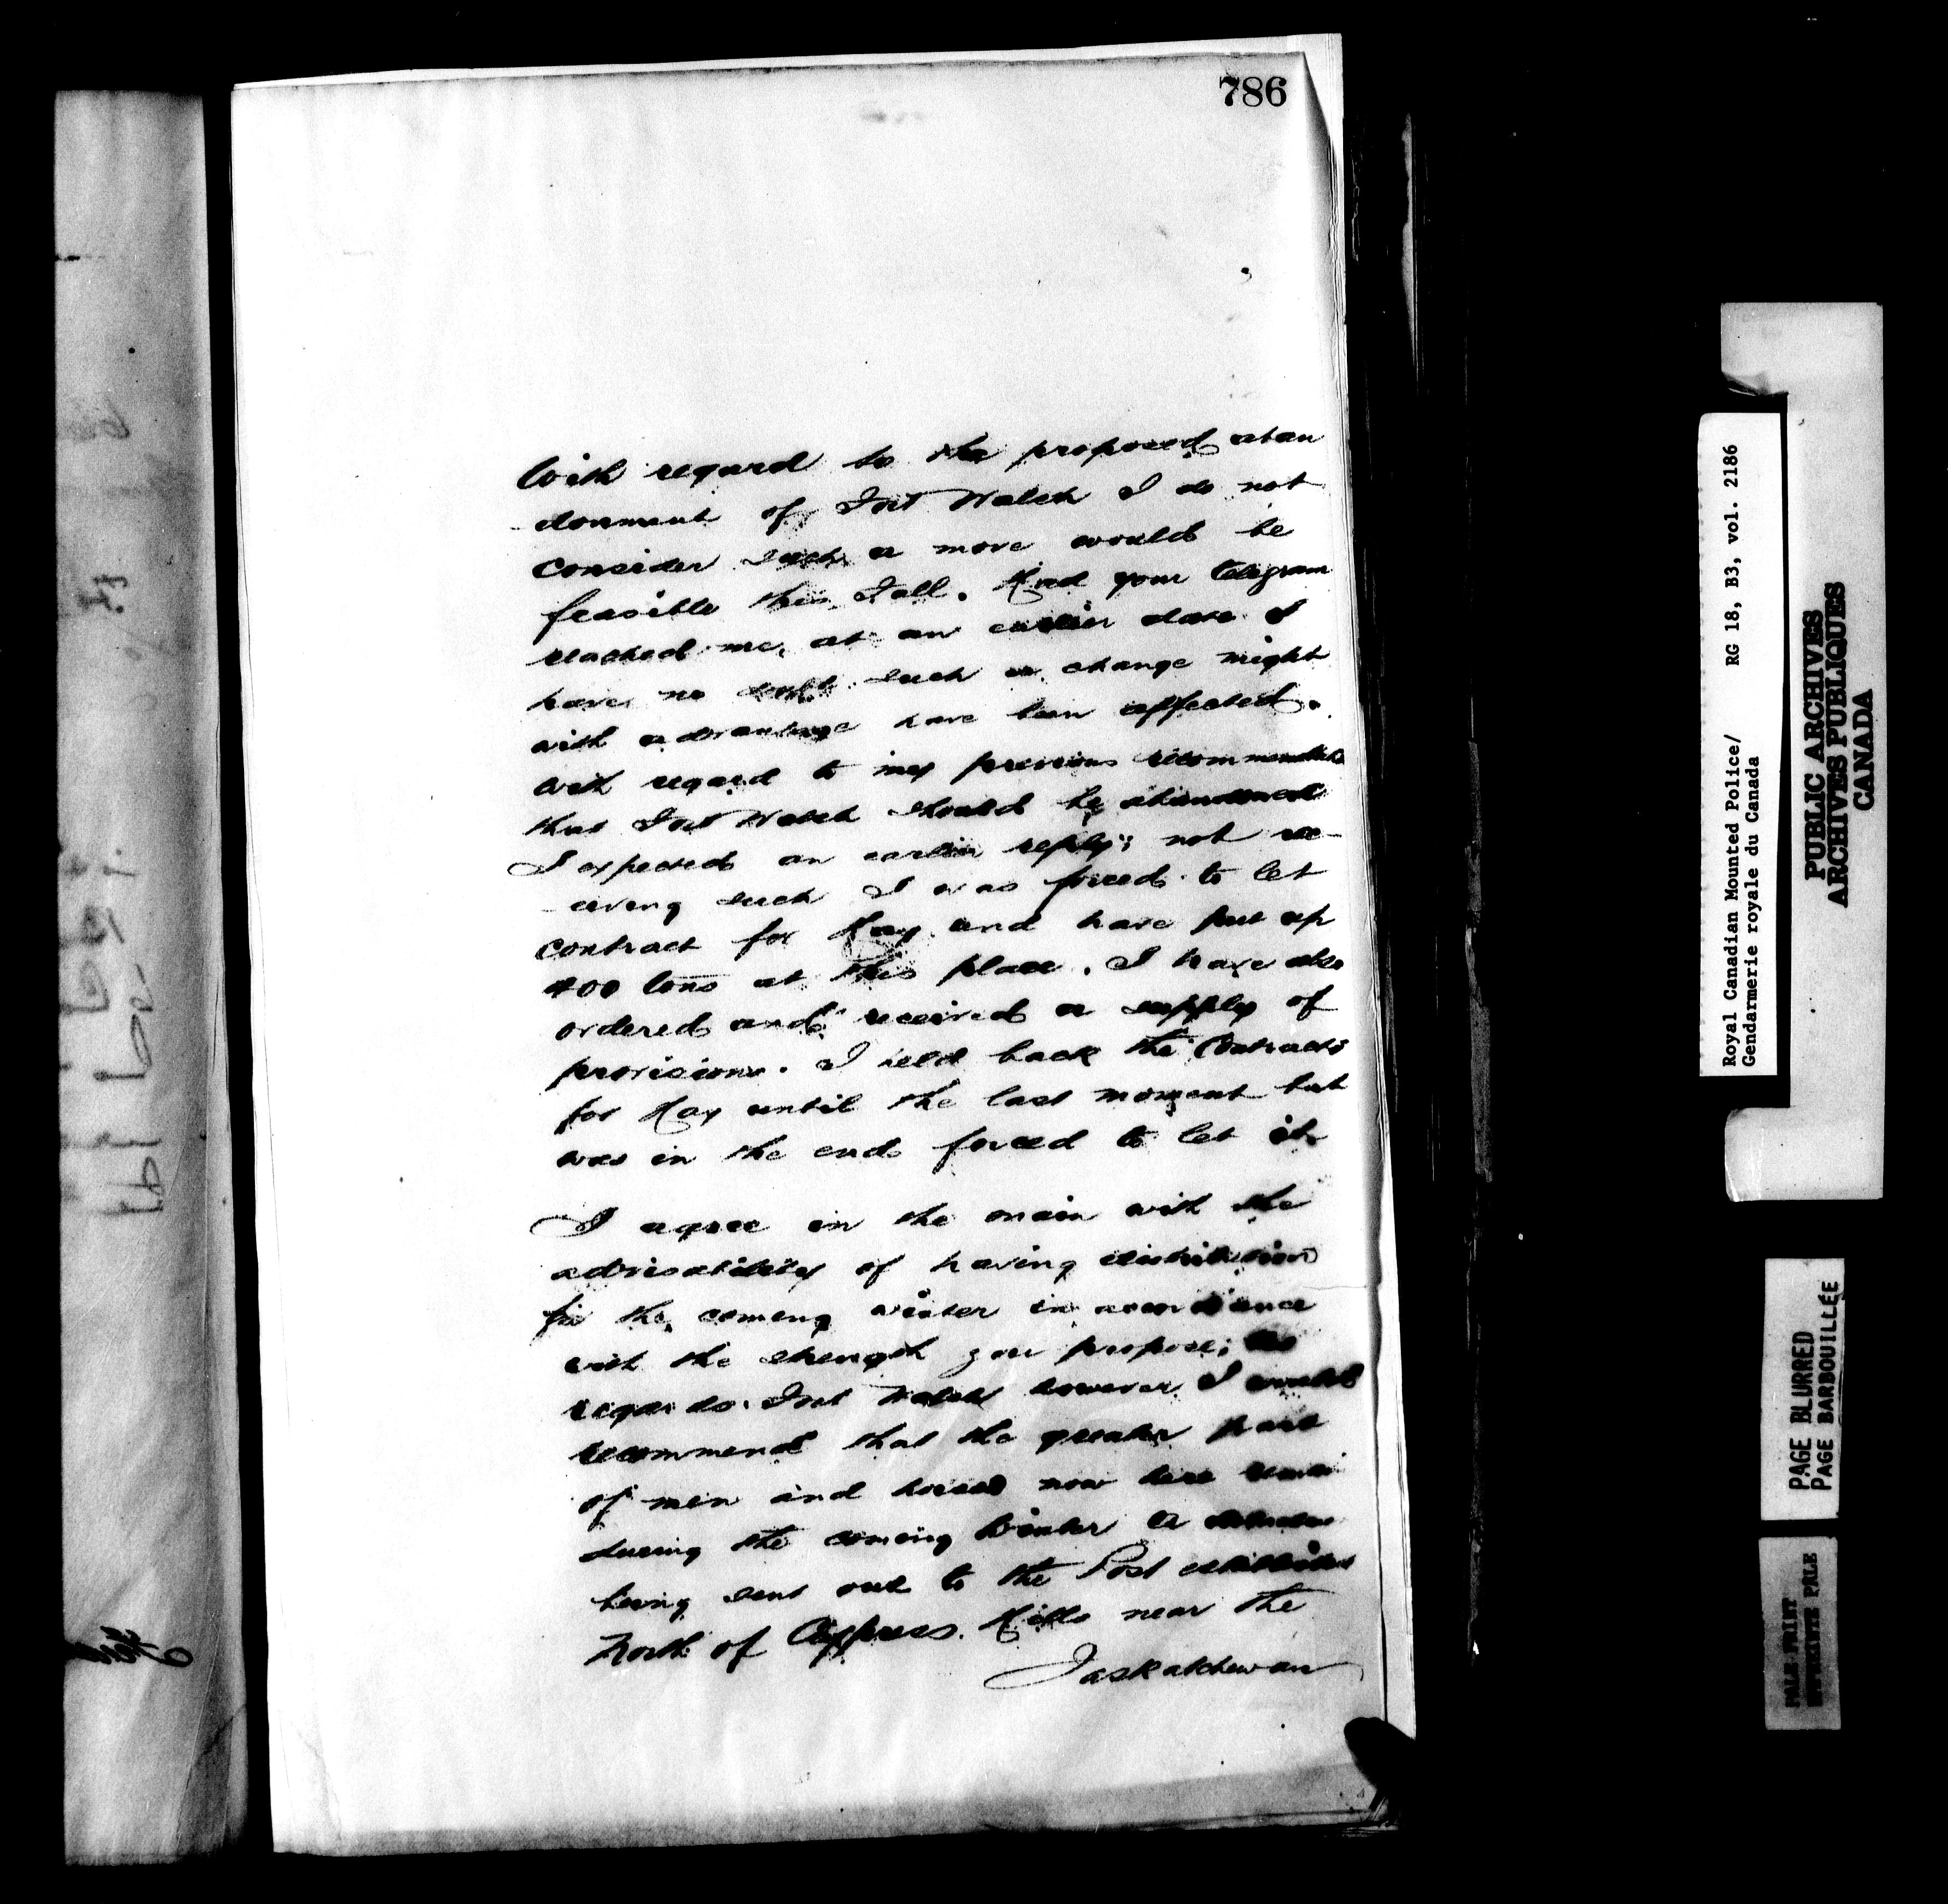 786
With regard to the proposed aban
- donment of Fort Walsh I do not
consider such a move would be
feasible this Fall. Had your telegram
reached me, at an earlier date I
have no doubt such a change might
with advantage have been effected.
With regard to my previous recommendation
that Fort Walsh should be abandoned
I expected an earlier reply; not re-
- ceiving such I was forced to let
contract for Hay and have put up
400 tons at this place. I have also
ordered and received a supply of
provisions. I held back the Contracts
for Hay until the last moment but
was in the end forced to let it
I agree in the main with the
advisability of having distribution
for the coming winter in accordance
with the strength you propose; as
regards Fort Walsh however I would
recommend that the greater part
of men and horses now here remain
during the coming Winter a
being sent out to the Post established
North of Cypress Hills near the
Saskatchewan
Royal Canadian Mounted Police/ RG 18, B3, vol. 2186
Gendarmerie royale du Canada
PUBLIC ARCHIVES
ARCHIVES PUBLIQUES
CANADA
PAGE BLURRED
PAGE BARBOUILLÉE
PALE PRINT
EPREUVE PALE